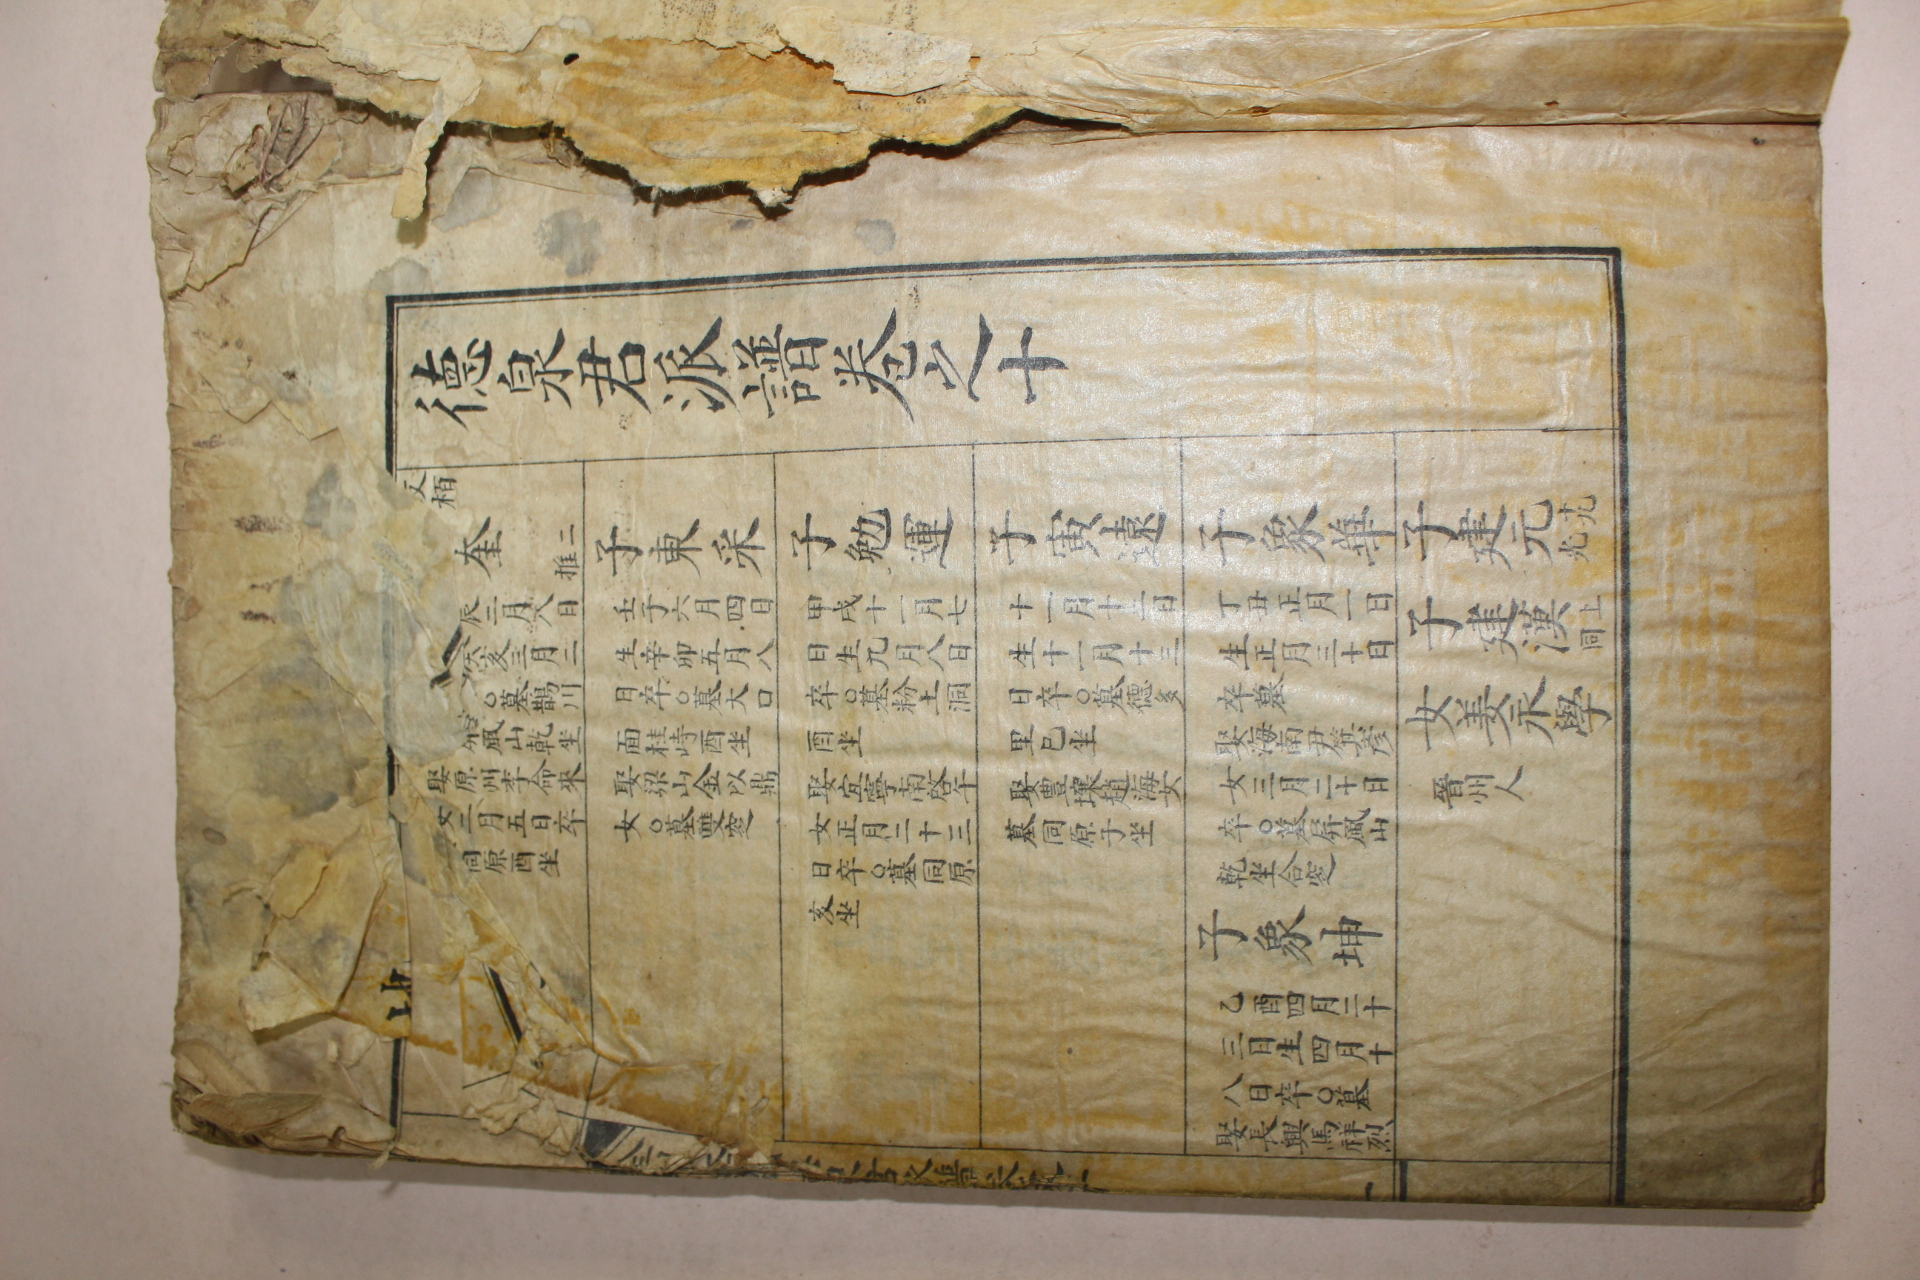 德泉君派譜卷之十
栢
奎
推二
辰三月八日
亥三月二
○墓鵲川
風山乾坐
娶原州李命來
女三月五日卒
同原酉坐
子東采
壬子六月四日
生辛卯五月八
日卒○墓大口
面桂峙酉坐
娶梁山金以鼎
女○墓雙窆
子勉運
甲戌十一月七
日生九月八日
卒○墓粉土洞
酉坐
娶宜寧南啓午
女正月二十三
日卒○墓同原
亥坐
子寅遠
十一月十二日
生十一月十三
日卒○墓德多
里巳坐
娶豊壤趙海女
墓同原子坐
子象華
丁丑正月一日
生正月三十日
卒墓
娶海南尹箕彦
女三月二十日
卒○墓屛風山
乾坐合窆
子象坤
乙酉四月二十
三日生四月十
八日卒○墓
娶長興馬祥烈
子建元
十九
子建漢
同上
女姜永學
晉州人